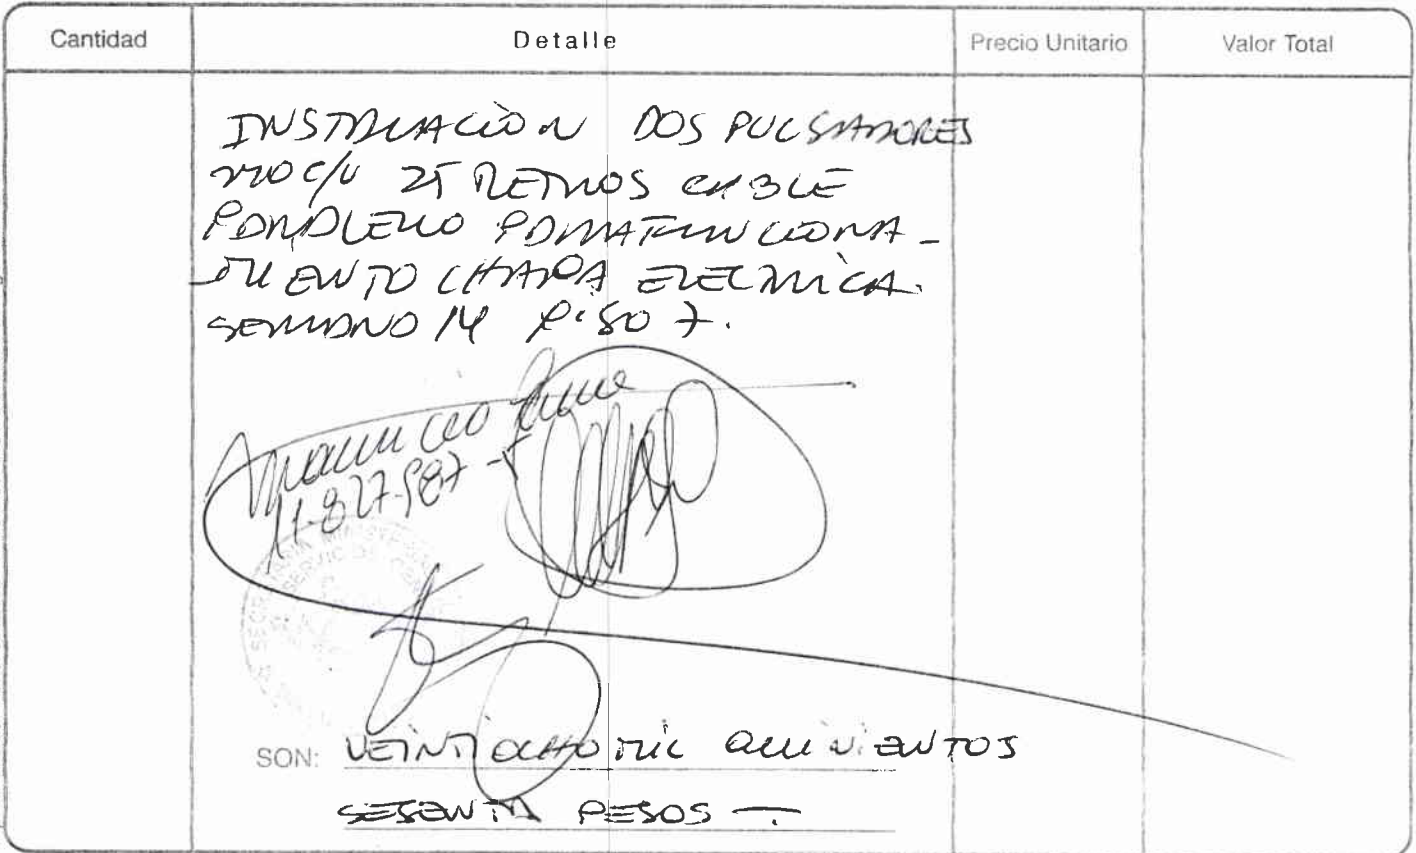 Cantidad Detalle Precio Unitario Valor Total
INSTALACIÓN DOS PULSADORES
c/u 25 METROS CABLE
PARALELO PARA FUNCIONA-
MIENTO CHAPA ELECTRICA.
SERRANO 14 PISO 7.
Mauricio
11.827.987-
SON: VEINTIOCHO MIL QUINIENTOS
SESENTA PESOS —.